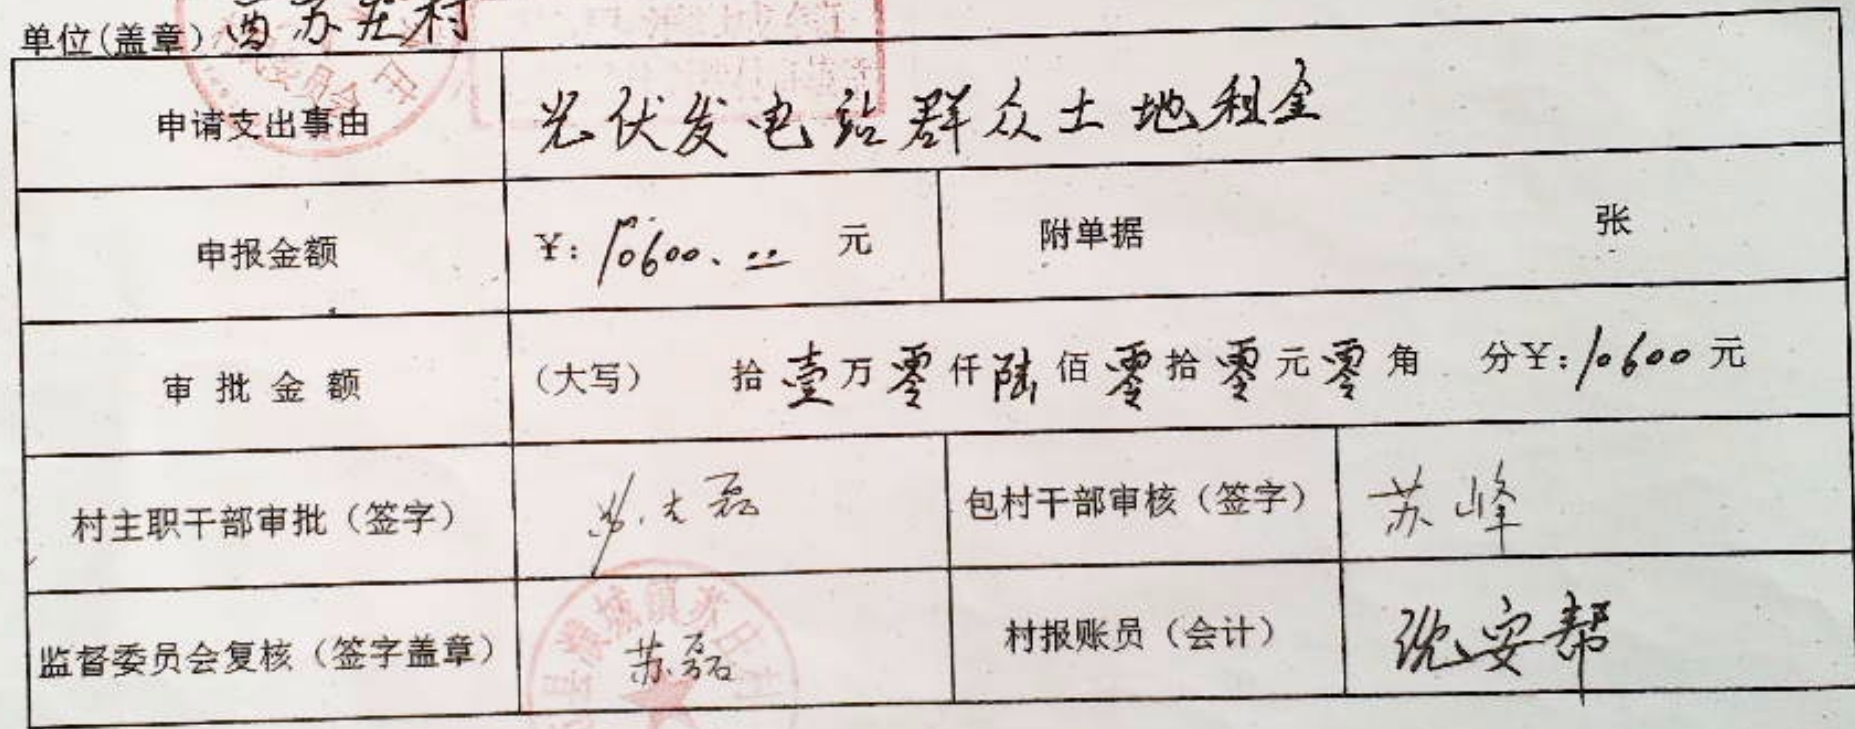 单位(盖章) 西苏庄村
申请支出事由 光伏发电站群众土地租金
申报金额 ¥: 10600.00 元 附单据 张
审批金额 (大写) 拾壹万零仟陆佰零拾零元零角 分¥: 10600元
村主职干部审批（签字） 包村干部审核（签字） 苏峰
监督委员会复核（签字盖章） 苏磊 村报账员（会计） 沈安帮